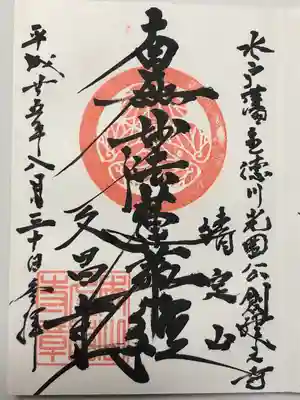 水戸藩主徳川光圀公創建之寺
靖定山
南無妙法蓮華経
久昌寺
平成廿五年八月三十日参拝